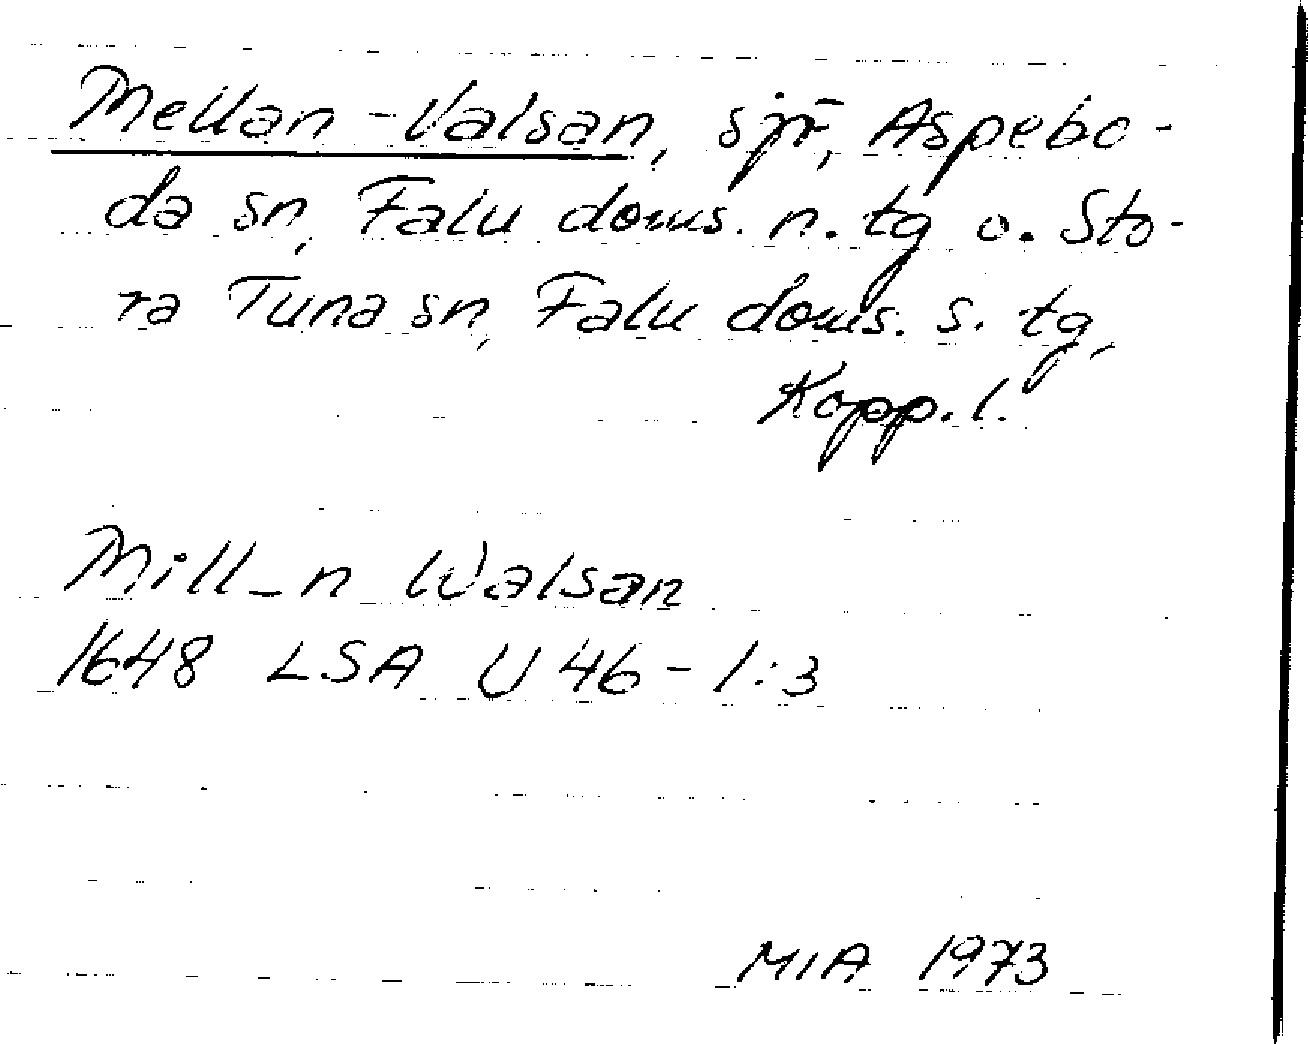 Mellan-Valsan, sjö, Aspebo-
da sn, Falu doms. n. tg o. Sto-
ra Tuna sn, Falu doms. s. tg,
Kopp. l.
Mill_n Walsan
1648 LSA U 46-1:3
MIA 1973